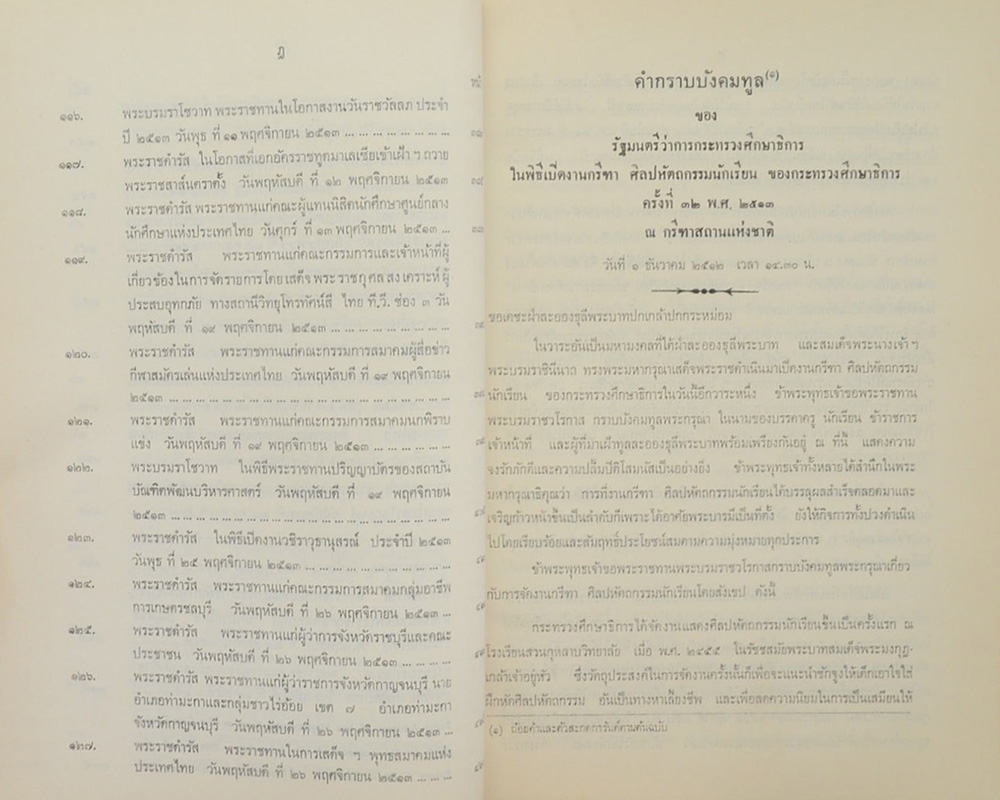 ฎ
๑๑๖. พระบรมราโชวาท พระราชทานในโอกาสงานวันราชวัลลภ ประจำ
ปี ๒๕๑๓ วันพุธ ที่ ๑๑ พฤศจิกายน ๒๕๑๓ ... ... ... ... ... ... ... ...
๑๑๗. พระราชดำรัส ในโอกาสที่เอกอัครราชทูตมาเลเซียเข้าเฝ้า ฯ ถวาย
พระราชสาส์นตราตั้ง วันพฤหัสบดี ที่ ๑๒ พฤศจิกายน ๒๕๑๓ ...
๑๑๘. พระราชดำรัส พระราชทานแก่คณะผู้แทนนิสิตนักศึกษาศูนย์กลาง
นักศึกษาแห่งประเทศไทย วันศุกร์ ที่ ๑๓ พฤศจิกายน ๒๕๑๓ ...
๑๑๙. พระราชดำรัส พระราชทานแก่คณะกรรมการและเจ้าหน้าที่ผู้
เกี่ยวข้องในการจัดรายการโดยเสด็จพระราชกุศลสงเคราะห์ผู้
ประสบอุทกภัย ทางสถานีวิทยุโทรทัศน์สี ไทย ที.วี. ช่อง ๓ วัน
พฤหัสบดี ที่ ๑๙ พฤศจิกายน ๒๕๑๓ ... ... ... ... ... ... ... ...
๑๒๐. พระราชดำรัส พระราชทานแก่คณะกรรมการสมาคมผู้สื่อข่าว
กีฬาสมัครเล่นแห่งประเทศไทย วันพฤหัสบดี ที่ ๑๙ พฤศจิกายน
๒๕๑๓ ... ... ... ... ... ... ... ... ... ... ... ... ... ... ... ... ... ... ...
๑๒๑. พระราชดำรัส พระราชทานแก่คณะกรรมการสมาคมนกพิราบ
แข่ง วันพฤหัสบดี ที่ ๑๙ พฤศจิกายน ๒๕๑๓ ... ... ... ... ... ...
๑๒๒. พระบรมราโชวาท ในพิธีพระราชทานปริญญาบัตรของสถาบัน
บัณฑิตพัฒนบริหารศาสตร์ วันพฤหัสบดี ที่ ๑๙ พฤศจิกายน
๒๕๑๓ ... ... ... ... ... ... ... ... ... ... ... ... ... ... ... ... ... ... ...
๑๒๓. พระราชดำรัส ในพิธีเปิดงานวชิราวุธานุสรณ์ ประจำปี ๒๕๑๓
วันพุธ ที่ ๒๕ พฤศจิกายน ๒๕๑๓ ... ... ... ... ... ... ... ... ... ...
๑๒๔. พระราชดำรัส พระราชทานแก่คณะกรรมการสมาคมกลุ่มอาชีพ
การเกษตรชลบุรี วันพฤหัสบดี ที่ ๒๖ พฤศจิกายน ๒๕๑๓ ...
๑๒๕. พระราชดำรัส พระราชทานแก่ผู้ว่าการจังหวัดราชบุรีและคณะ
ประชาชน วันพฤหัสบดี ที่ ๒๖ พฤศจิกายน ๒๕๑๓ ... ... ... ...
๑๒๖. พระราชดำรัส พระราชทานแก่ผู้ว่าราชการจังหวัดกาญจนบุรี นาย
อำเภอท่ามะกาและกลุ่มชาวไร่อ้อย เขต ๗ อำเภอท่ามะกา
จังหวัดกาญจนบุรี วันพฤหัสบดี ที่ ๒๖ พฤศจิกายน ๒๕๑๓ ...
๑๒๗. พระราชดำรัส พระราชทานในการเสด็จ ฯ พุทธสมาคมแห่ง
ประเทศไทย วันพฤหัสบดี ที่ ๒๖ พฤศจิกายน ๒๕๑๓ ... ... ...
คำกราบบังคมทูล(๑)
ของ
รัฐมนตรีว่าการกระทรวงศึกษาธิการ
ในพิธีเปิดงานกรีฑา ศิลปหัตถกรรมนักเรียน ของกระทรวงศึกษาธิการ
ครั้งที่ ๓๒ พ.ศ. ๒๕๑๓
ณ กรีฑาสถานแห่งชาติ
วันที่ ๑ ธันวาคม ๒๕๑๒ เวลา ๑๔.๓๐ น.
ขอเดชะฝ่าละอองธุลีพระบาทปกเกล้าปกกระหม่อม
ในวาระอันเป็นมหามงคลที่ใต้ฝ่าละอองธุลีพระบาท และสมเด็จพระนางเจ้า ฯ
พระบรมราชินีนาถ ทรงพระมหากรุณาเสด็จพระราชดำเนินมาเปิดงานกรีฑา ศิลปหัตถกรรม
นักเรียน ของกระทรวงศึกษาธิการในวันนี้อีกวาระหนึ่ง ข้าพระพุทธเจ้าขอพระราชทาน
พระบรมราชวโรกาส กราบบังคมทูลพระกรุณา ในนามของบรรดาครู นักเรียน ข้าราชการ
เจ้าหน้าที่ และผู้ที่มาเฝ้าทูลละอองธุลีพระบาทพร้อมเพรียงกันอยู่ ณ ที่นี้ แสดงความ
จงรักภักดีและความปลื้มปีติโสมนัสเป็นอย่างยิ่ง ข้าพระพุทธเจ้าทั้งหลายได้สำนึกในพระ
มหากรุณาธิคุณว่า การที่งานกรีฑา ศิลปหัตถกรรมนักเรียนได้บรรลุผลสำเร็จตลอดมาและ
เจริญก้าวหน้าขึ้นเป็นลำดับก็เพราะได้อาศัยพระบารมีเป็นที่ตั้ง ยังให้กิจการทั้งปวงดำเนิน
ไปโดยเรียบร้อยและสัมฤทธิ์ประโยชน์สมตามความมุ่งหมายทุกประการ
ข้าพระพุทธเจ้าขอพระราชทานพระบรมราชวโรกาสกราบบังคมทูลพระกรุณาเกี่ยว
กับการจัดงานกรีฑา ศิลปหัตถกรรมนักเรียนโดยสังเขป ดังนี้
กระทรวงศึกษาธิการได้จัดงานแสดงศิลปหัตถกรรมนักเรียนขึ้นเป็นครั้งแรก ณ
โรงเรียนสวนกุหลาบวิทยาลัย เมื่อ พ.ศ. ๒๔๕๕ ในรัชสมัยพระบาทสมเด็จพระมงกุฎ-
เกล้าเจ้าอยู่หัว ซึ่งวัตถุประสงค์ในการจัดงานครั้งนั้นก็เพื่อจะแนะนำชักจูงให้เด็กเอาใจใส่
ฝึกหัดศิลปหัตถกรรม อันเป็นทางหาเลี้ยงชีพ และเพื่อลดความนิยมในการเป็นเสมียนให้
(๑) ถ้อยคำและตัวสะกดการันต์ตามต้นฉบับ